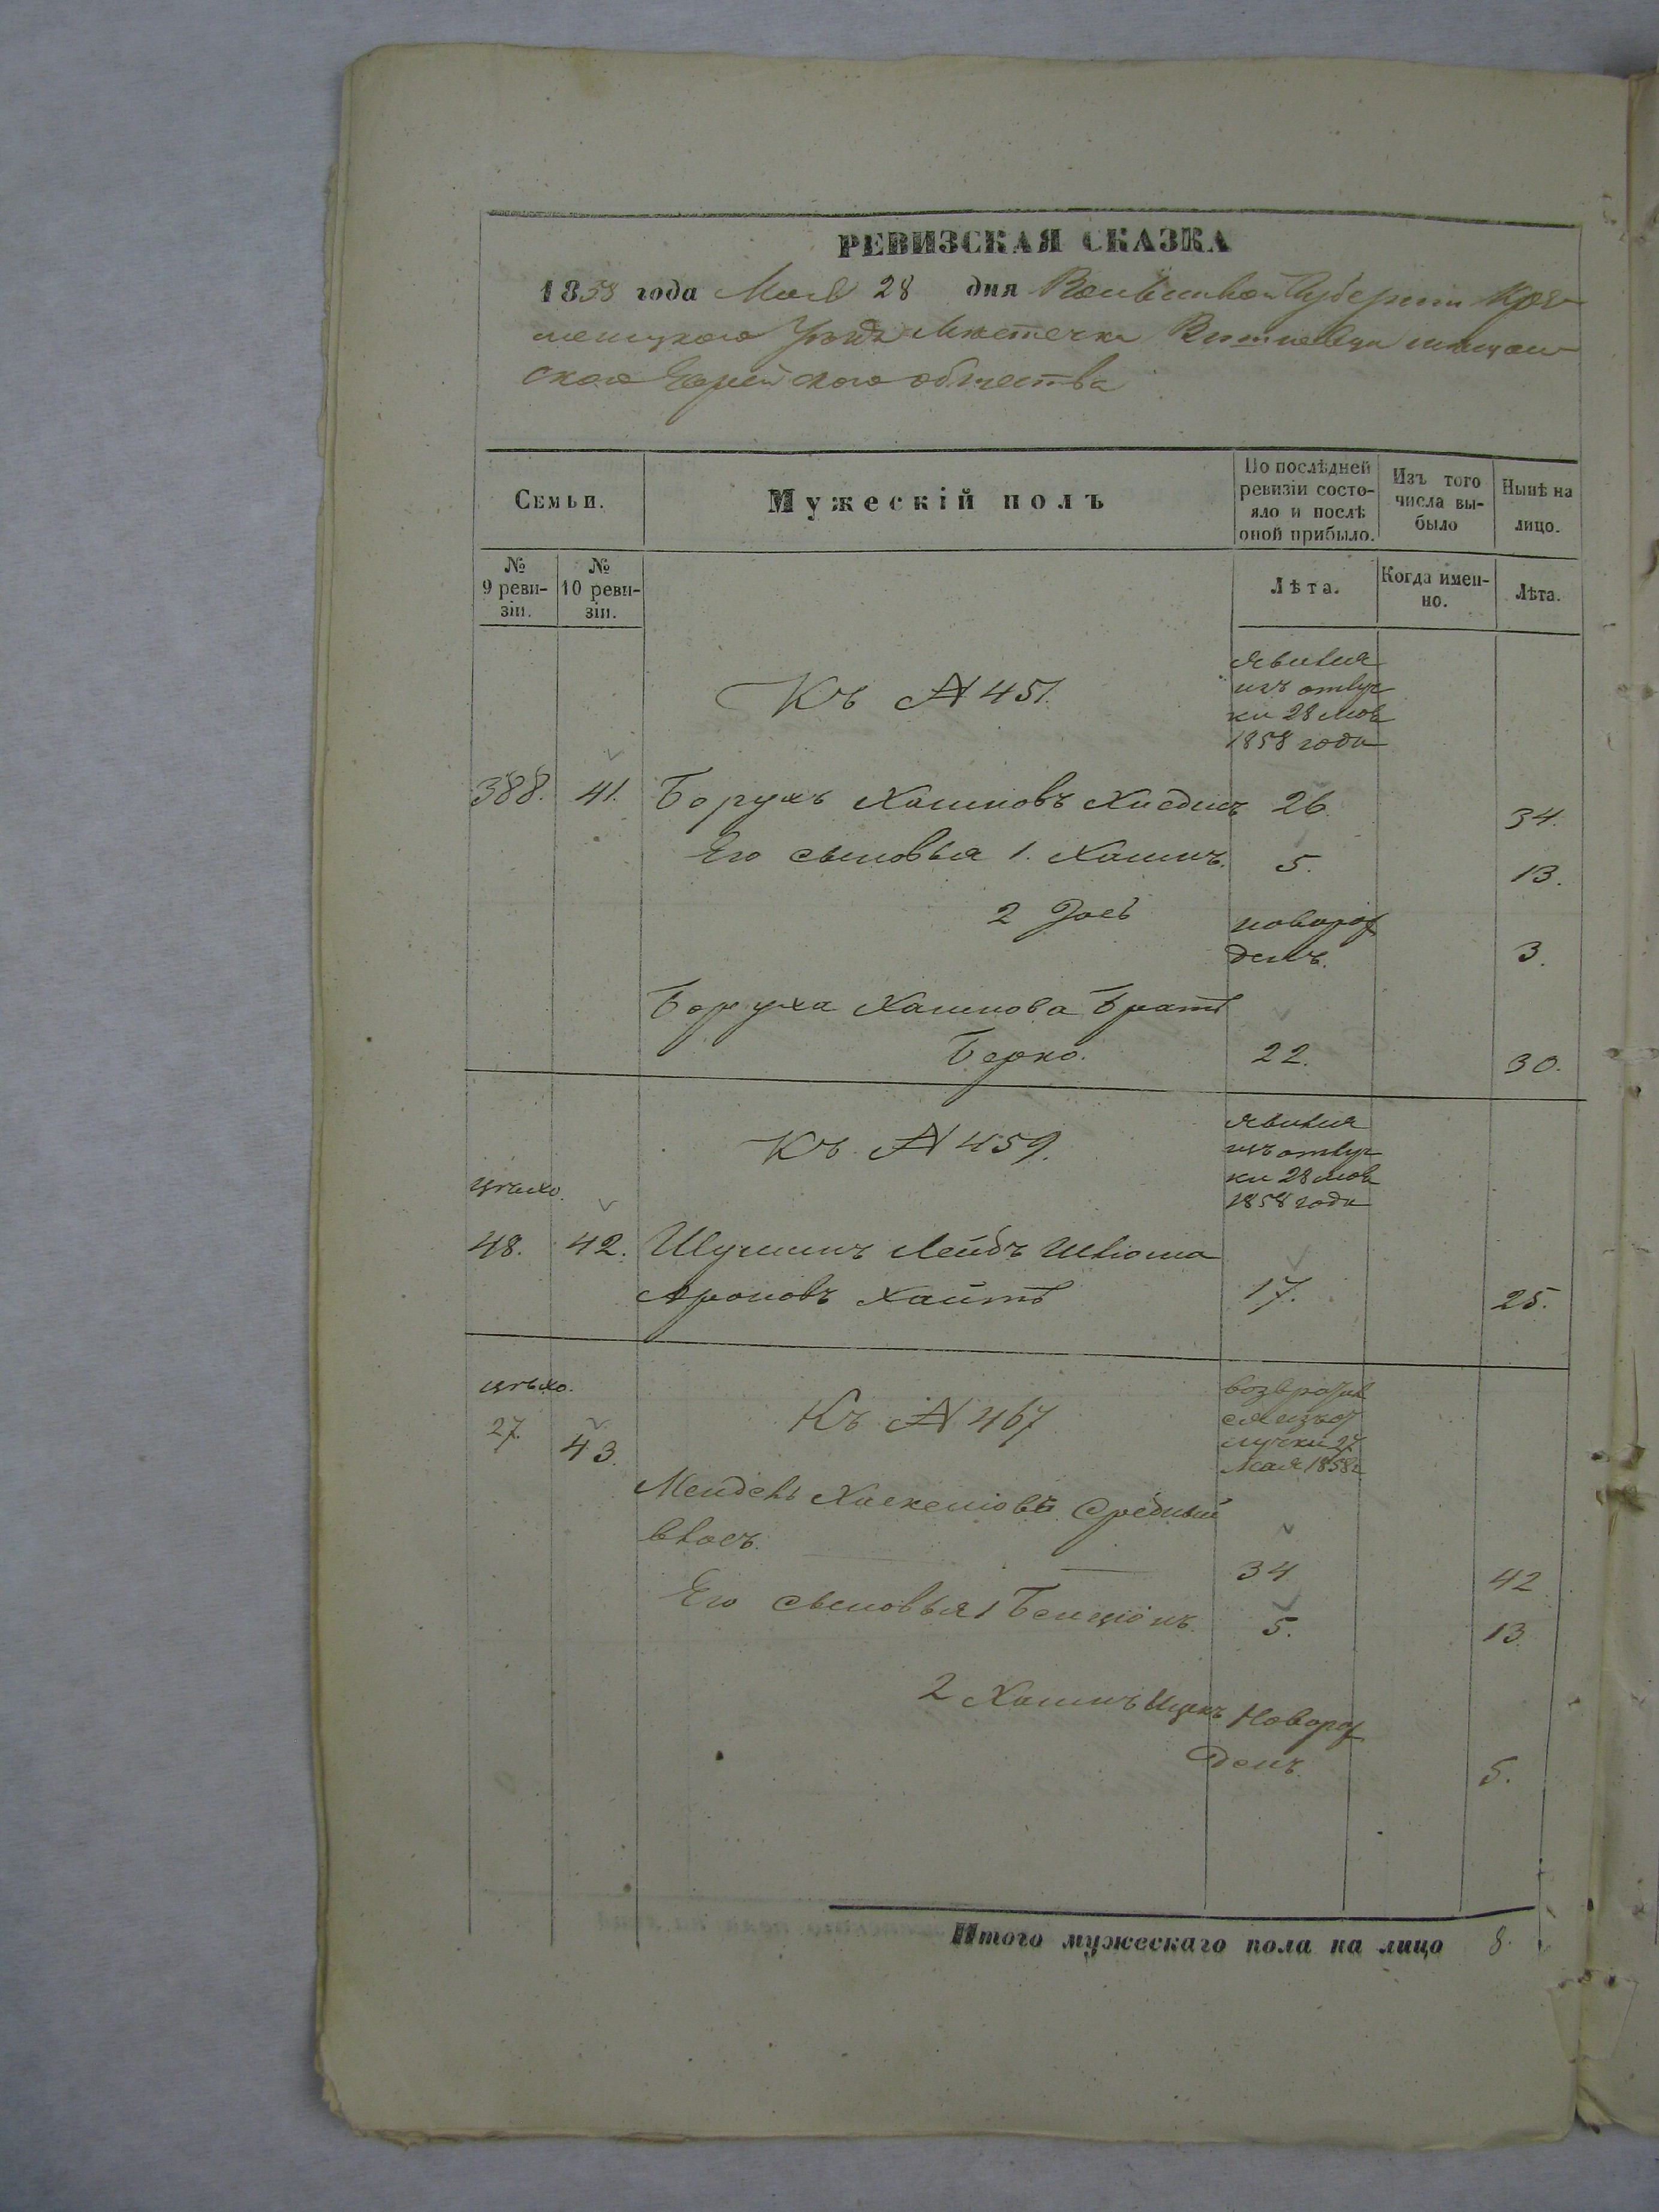 РЕВИЗСКАЯ СКАЗКА
1858 года Мая 28 дня Волынской Губернии Кре-
менецкого Уезда Местечка Вишневца мещан-
ского Еврейского общества
Семьи.
Мужескій полъ
По послѣдней ревизіи состо-
яло и послѣ оной прибыло.
Изъ того числа вы-
было
Нынѣ на лицо.
№ 9 реви-
зіи.
№ 10 реви-
зіи.
Лѣта.
Когда имен-
но.
Лѣта.
Къ № 451.
явился
изъ отлуч
ки 28 мая
1858 года
388. 41. Борухъ Хаимовъ 26. 34.
Его сыновья 1. Хаимъ. 5. 13.
2 Іосъ новорож
денъ. 3.
Боруха Хаимова братъ
Берко. 22. 30.
Къ № 459.
явился
изъ отлуч
ки 28 мая
1858 года
48. 42. Шулимъ Лейбъ Шлюма
Ароновъ Хаитъ 17. 25.
27. 43.
Къ № 467
возвратил
ся изъ от
лучки 27
Мая 1858 г
Мендель Хаскеліовъ Средный
влосъ. 34 42
Его сыновья 1 Бенціонъ. 5. 13
2 Хаимъ Ицекъ Новорож
денъ. 5.
Итого мужескаго пола на лицо 8.